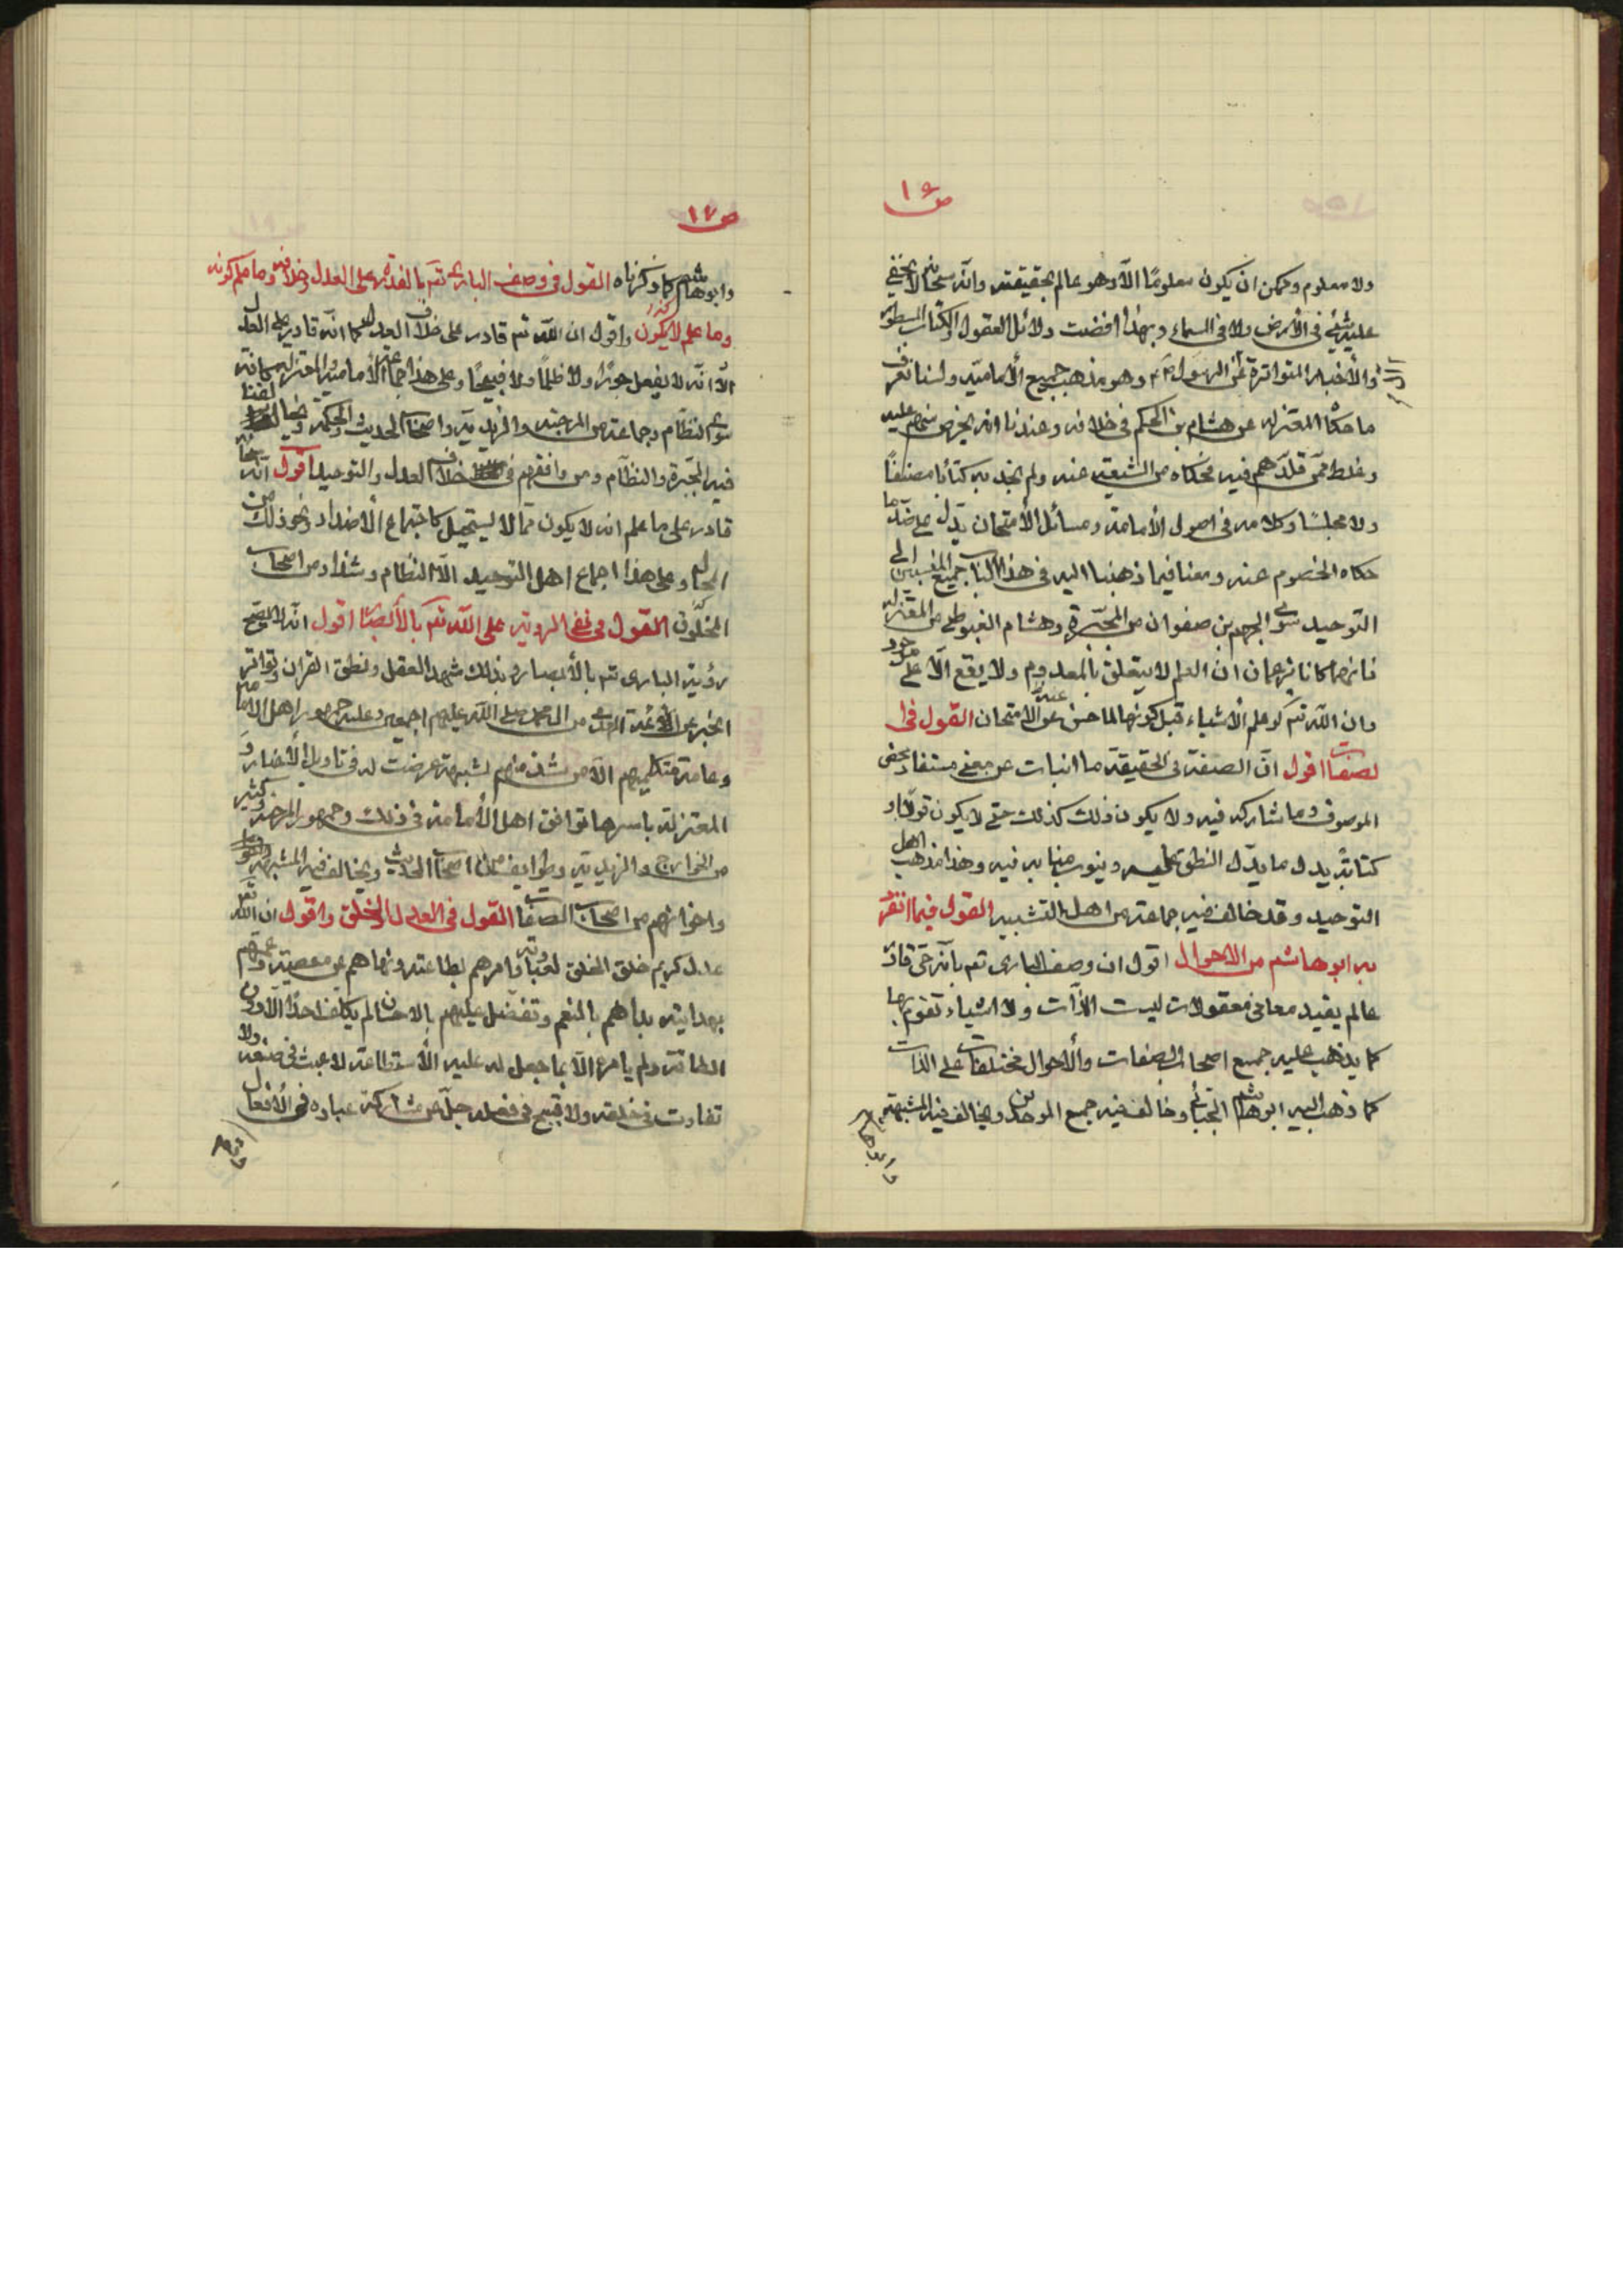 ص ١٦
ولا معلوم وممكن ان يكون معلومًا الّا وهو عالم بحقيقته وانّه سبحانه لا يخفى
عليه شيئ فى الأرض ولا فى السماء وبهذا افضت دلائل العقول والكتاب المسطور
والأخبار المتواترة عن الرسول وهو مذهب جميع الأماميّه ولسنا نعرف
ما حكاه المعتزله عن هشام بن الحكم فى خلافه وعندنا انه تخرص منهم عليه
وغلط ممّن قلّدهم فيه فحكاه من الشيعه عنه ولم نجد به كتابًا مصنفًا
ولا مجلسًا وكلامه فى اصول الأمامة ومسائل الأمتحان يدّل على ضدّ ما
حكاه الخصوم عنه ومعنا فيما ذهبنا اليه فى هذا الباب جميع المنتسبين الى
التوحيد سوى الجهم بن صفوان من المجبّرة وهشام الفوطى من المعتزله
فانهما كانا يزعمان ان العلم لا يتعلق بالمعدوم ولا يقع الّا على موجود
وان الله تعـ لو علم الأشياء قبل كونها لما حسن عنه الأمتحان القول فى ا
لصفات اقول انّ الصفة فى الحقيقة ما انبات عن معنى مستفاد يخص
الموصوف وما شاركه فيه ولا يكون ذلك كذلك حتى لا يكون قولًا او
كتابتًه يدل ما يدّل النطق عليه وينوب منابه فيه وهذا مذهب اهل
التوحيد وقد خالف فيه جماعة من اهل التشبيه القول فيما انفرد
به ابو هاشم من الاحوال اقول ان وصف البارى تعـ بانّه حى قادر
عالم يفيد معانى معقولات ليست الذّات ولا اشياء تقوم بها
كما يذهب عليه جميع اصحاب الصفات والأحوال مختلفات على الذات
كما ذهب اليه ابو هاشم الجبّائى وخالف فيه جميع الموحدين ويخالف فيه المشبهة
ص ١٧
وابو هاشم كما ذكرناه القول فى وصف البارى تعـ بالقدرة على العدل وخلافه وما علم كونه
وما علم لا يكون واقول ان الله تعـ قادر على خلاف العدل كما انّه قادر على العدل
الّا انّه لا يفعل جورًا ولا ظلمًا ولا قبيحًا وعلى هذا جماعة الأماميّه والمعتزله كافة
سوى النظّام وجماعة من المرجئه والزيديّه واصحاب الحديث والحكمة ويخالفنا
فيه المجبّرة والنظّام ومن وافقهم فى خلاف العدل والتوحيد اقول انّه سبحانه
قادر على ما علم انه لا يكون ممّا لا يستحيل كاجتماع الأضداد ونحو ذلك من
المحال وعلى هذا اجماع اهل التوحيد الّا النظام وشذاد من اصحاب
المخلوق القول فى نفى الروئية على الله تعـ بالأبصار اقول انّه لا يصح
رؤية البارى تعـ بالأبصار وبذلك شهد العقل ونطق القران وتواتر
الخبر عن الأئمّة الهدى من ال محمد صلى الله عليهم اجمعين وعليه جمهور اهل الامامة
وعامة متكلميهم الّا من شذ منهم لشبهة عرضت له فى تاويل الأخبار و
المعتزلة باسرها توافق اهل الأمامة فى ذلك وجمهور المرجئه وكثير
من الخوارج والزيديّه وطوايف من اصحاب الحديث ويخالف فيه المشبهة
واخوانهم من اصحاب الصفات القول فى العدل والخلق واقول ان الله تعـ
عدل كريم خلق الخلق لعبادته وامرهم بطاعته ونهاهم عن معصيته وعمّهم
بهدايته بداهم بالنعم وتفضّل عليهم بالاحسان لم يكلف احدًا الّا دون
الطاقة ولم يامره الّا بما جعل له عليه الأستطاعة لا عبث فى صنعه ولا
تفاوت فى خلقه ولا قبيح فى فعله جلّ عن مشاركة عباده فى الأفعال